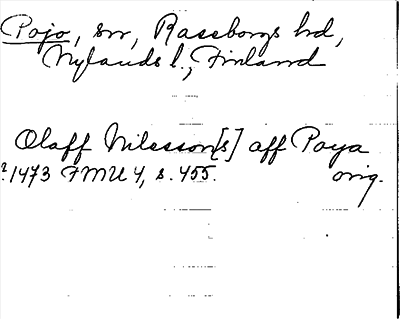 Pojo, sn, Raseborgs hd,
Nylands l., Finland
Olaff Nilsson[s] aff Poya
?1473 FMU 4, s. 455. orig.